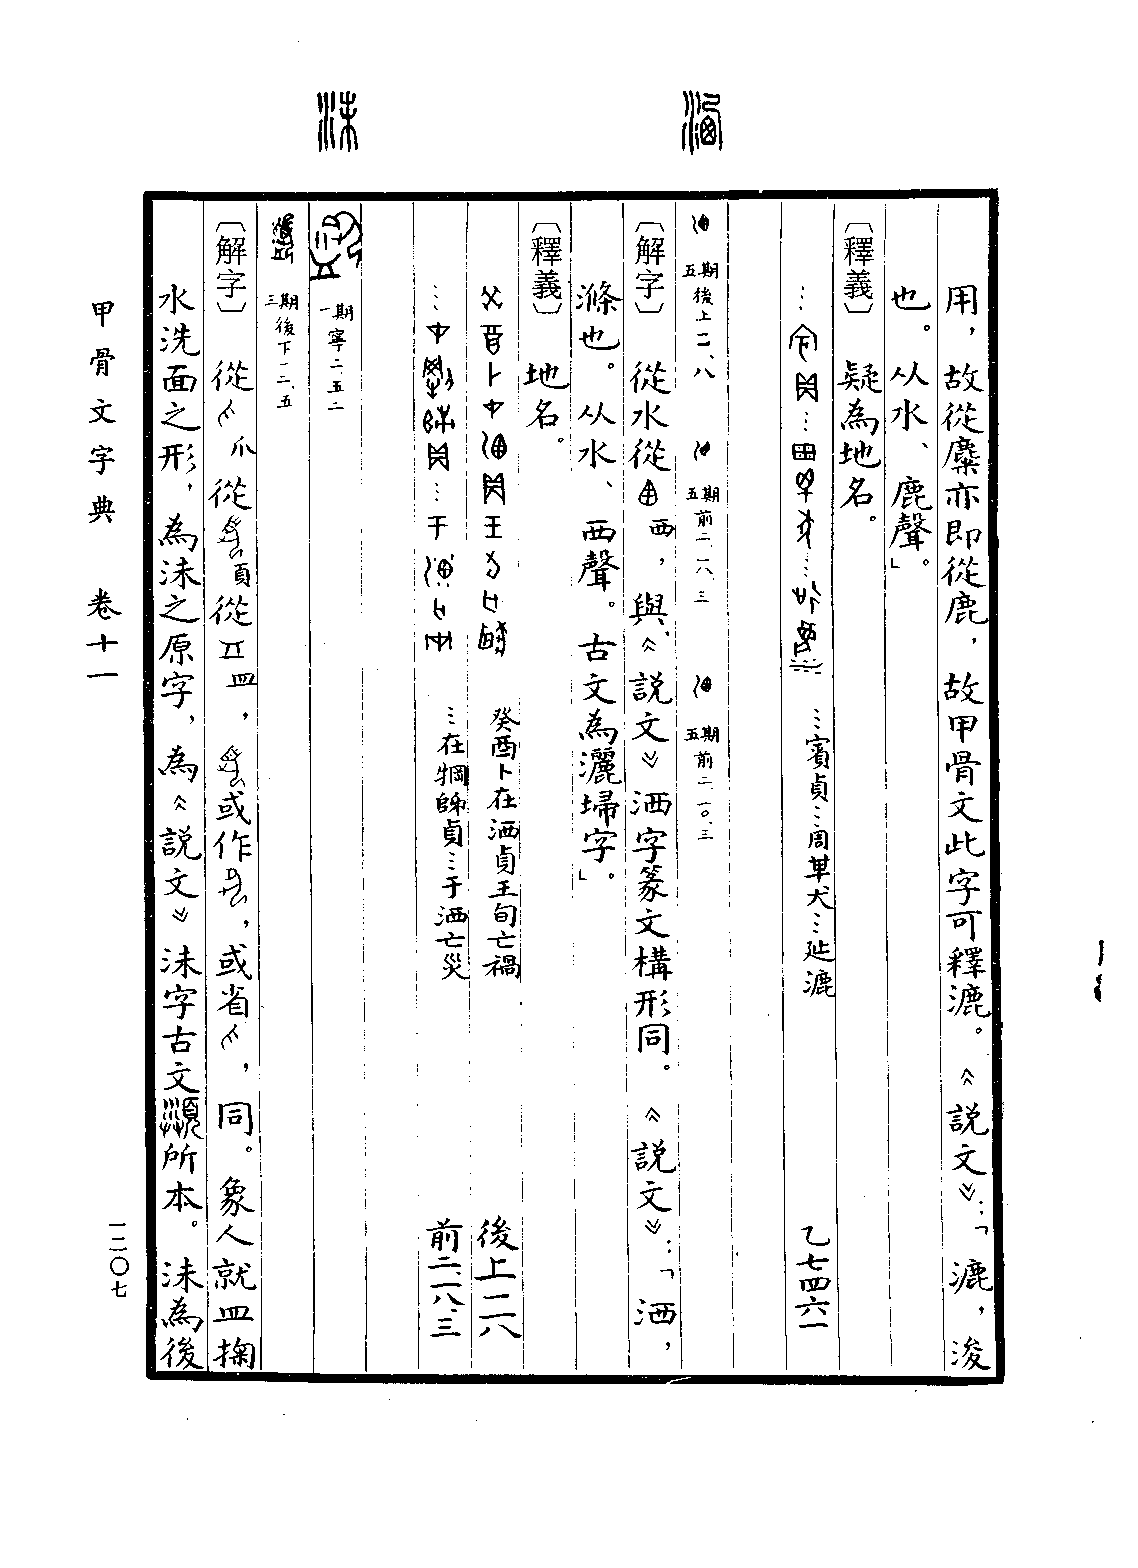 洒
沬
用，故從麋亦即從鹿，故甲骨文此字可釋漉。《說文》：「漉，浚
也。从水、鹿聲。」
〔釋義〕疑為地名。
…賓貞…周𢎥犬…㢟漉 乙七四六一
五期後上一二、八 五期前二、一八、三 五期前二、一〇、三
〔解字〕從水從西，與《說文》洒字篆文構形同。《說文》：「洒，
滌也。从水、西聲。古文為灑埽字。」
〔釋義〕地名。
癸酉卜在洒貞王旬亡禍 後上一二、八
…在㸫師貞…于洒亡災 前二、一八、三
一期寧二、五二
三期後下一二、五
〔解字〕從爪從頁從皿，或作，或省，同。象人就皿掬
水洗面之形，為沬之原字，為《說文》沬字古文所本。沬為後
甲骨文字典 卷十一
一二〇七